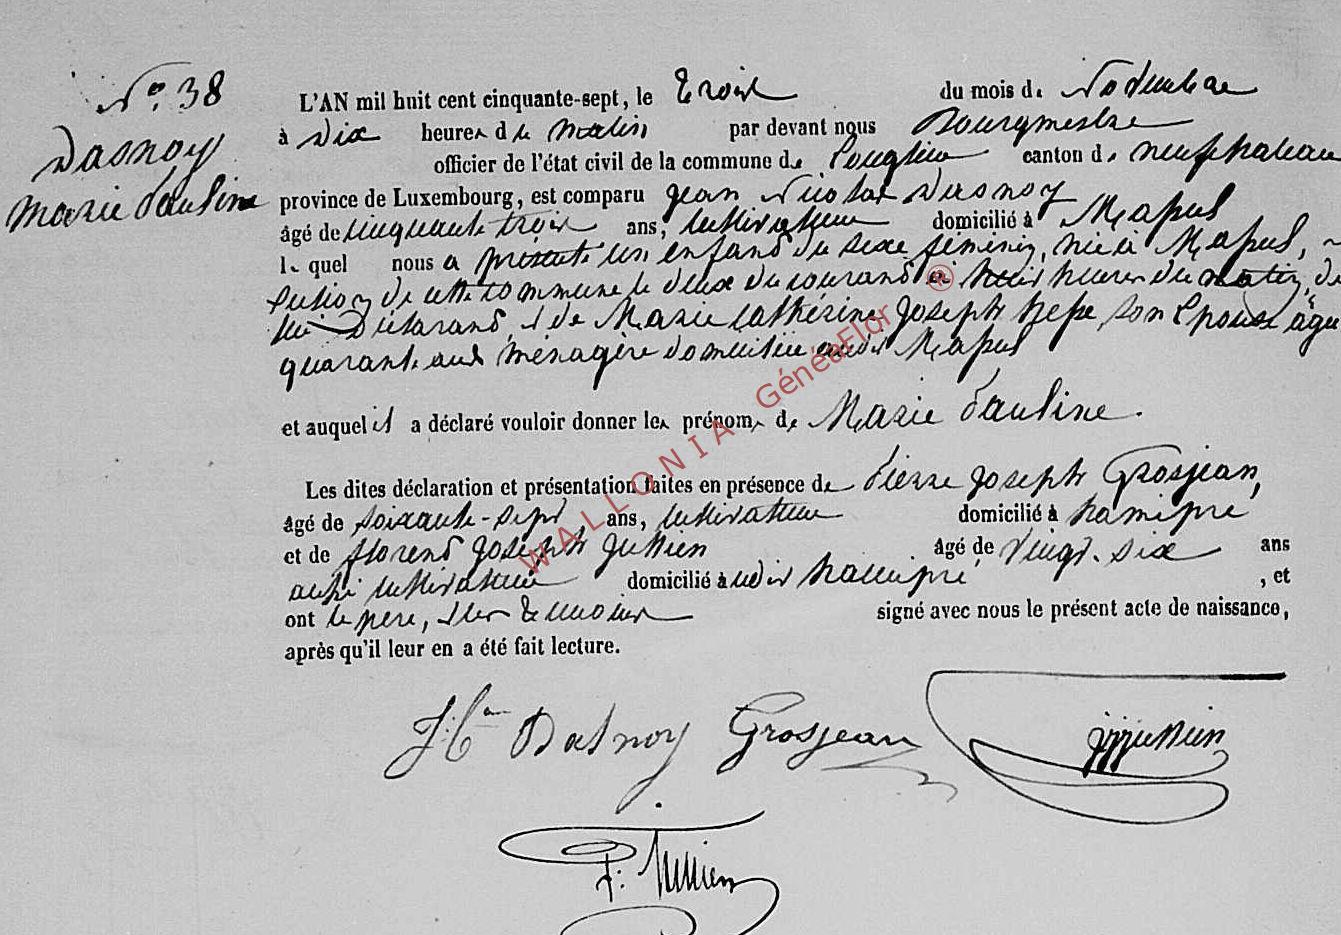 N° 38
Dasnoy
Marie Pauline
L'AN mil huit cent cinquante-sept, le trois du mois de Novembre
à dix heures du matin par devant nous Bourgmestre
officier de l'état civil de la commune de Longlier canton de neufchateau
province de Luxembourg, est comparu jean Nicolas Dasnoy
âgé de cinquante trois ans, cultivateur domicilié à Massul
lequel nous a présenté un enfand du sexe féminin, née à Massul,
section de cette commune le deux du courand à heures du matin, de
lui Déclarand, & de Marie Catherine Joseph son Epouse âgée
quarante ans ménagère domiciliée audit Massul
et auquel il a déclaré vouloir donner les prénoms de Marie Pauline.
Les dites déclaration et présentation faites en présence de Pierre Joseph Grosjean,
âgé de soixante-sept ans, cultivateur domicilié à hamipré
et de florend Joseph Jullien âgé de vingt-six ans
aussi cultivateur domicilié à udit hamipré, et
ont le père, & les témoins signé avec nous le présent acte de naissance,
après qu'il leur en a été fait lecture.
Dasnoy Grosjean fjjullien
Jullien
WALLONIA GénéaFlor ®